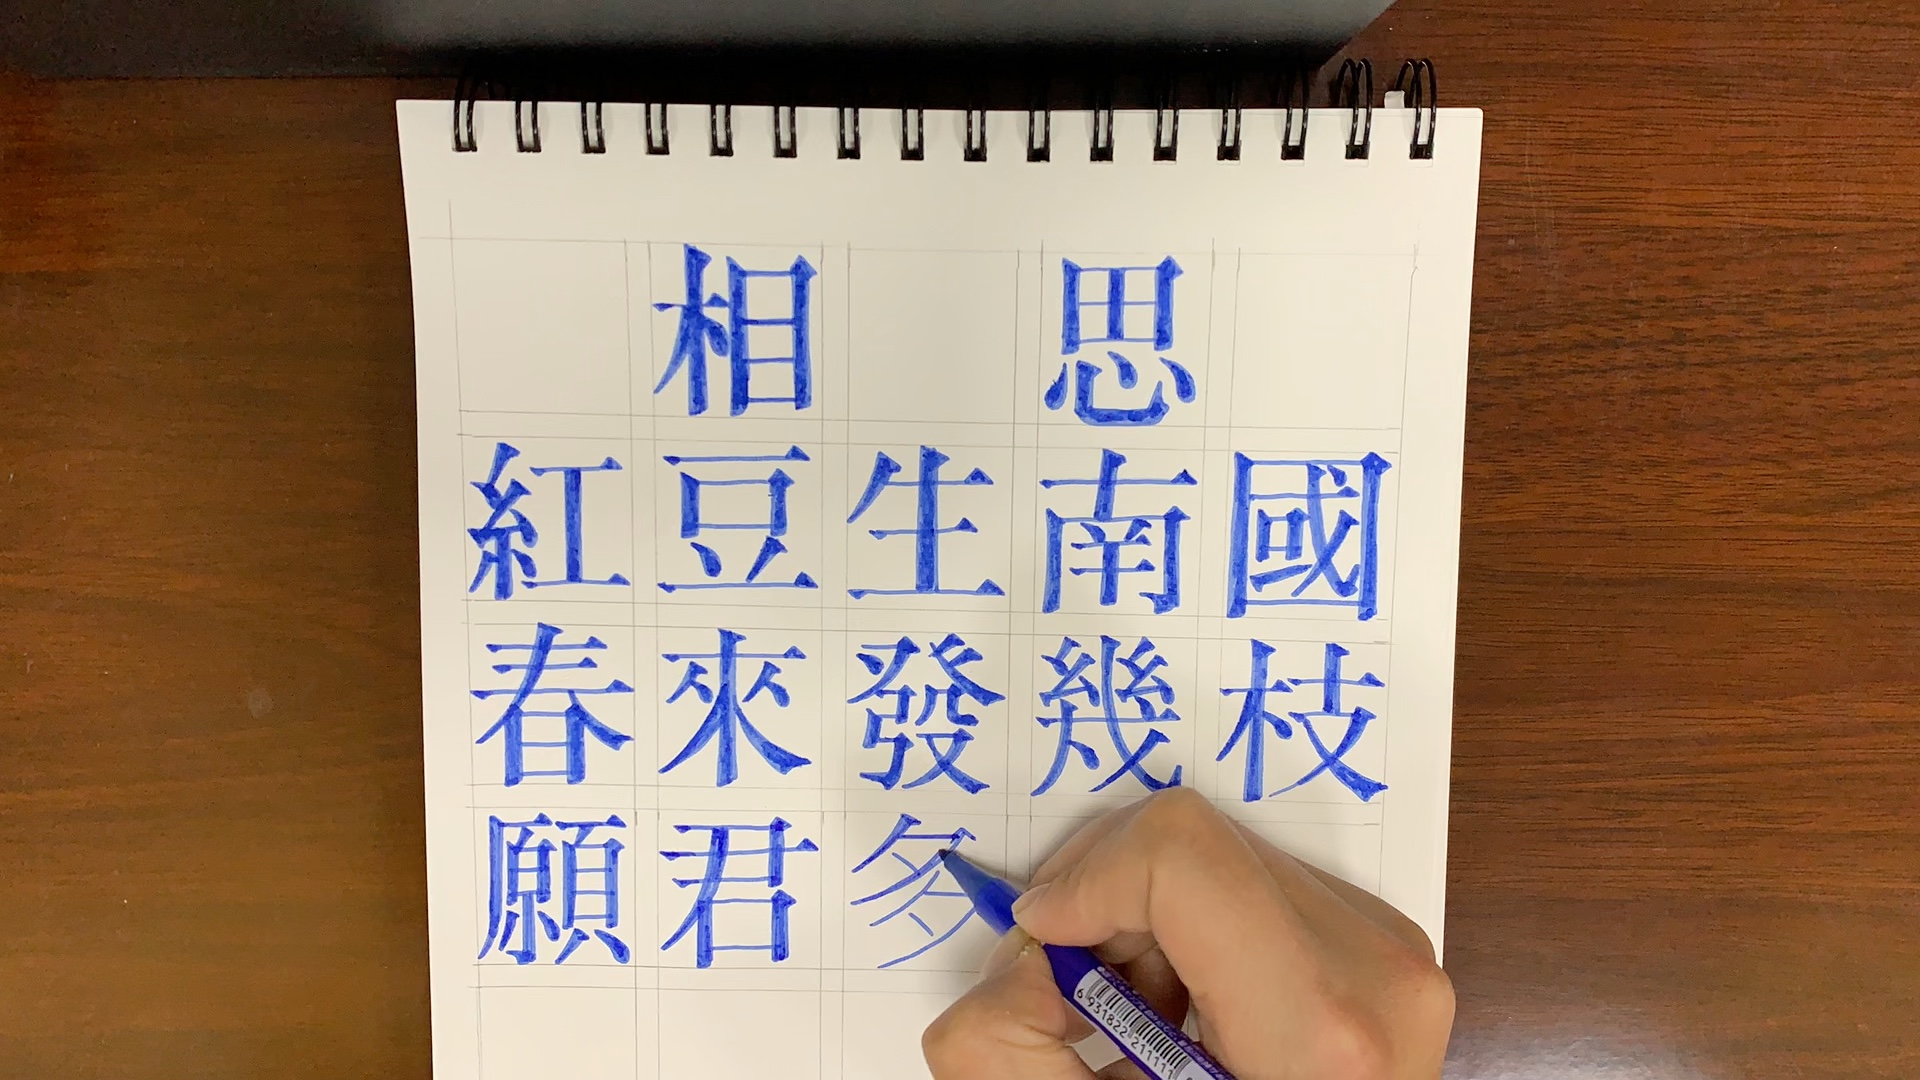 相思
紅豆生南國
春來發幾枝
願君多
6 931822 211111